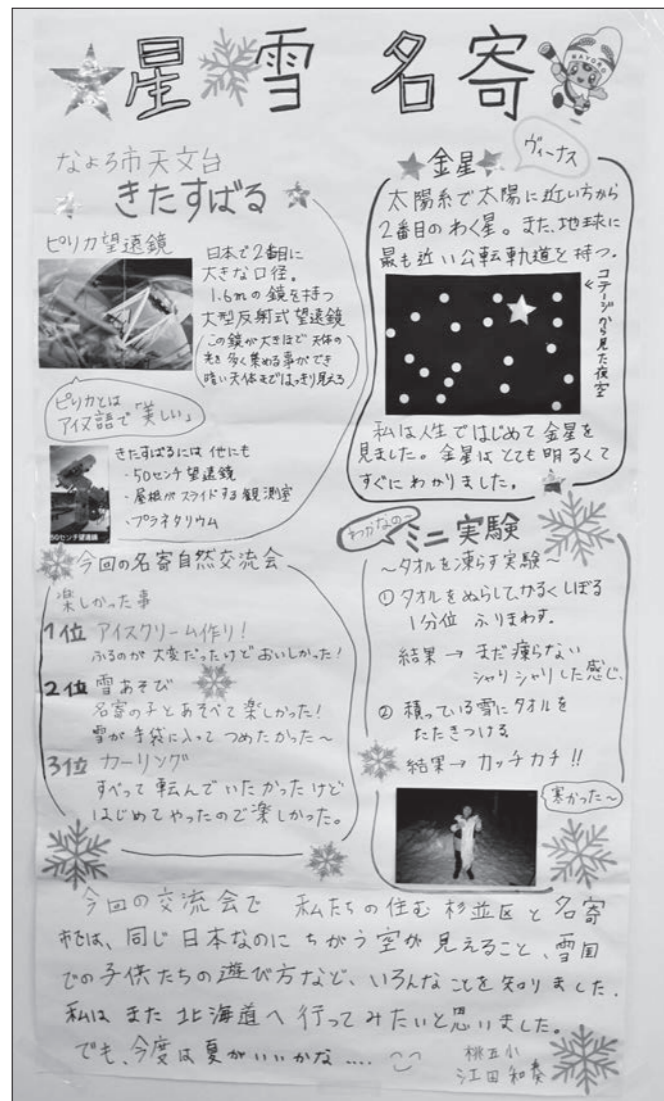 星雪名寄
NAYORO
なよろ市天文台
きたすばる
ピリカ望遠鏡
日本で2番目に
大きな口径。
1.6mの鏡を持つ
大型反射式望遠鏡
(この鏡が大きほど天体の
光を多く集める事ができ
暗い天体まではっきり見える)
ピリカとは
アイヌ語で「美しい」
きたすばるには他にも
・50センチ望遠鏡
・屋根がスライドする観測室
・プラネタリウム
50センチ望遠鏡
今回の名寄自然交流会
楽しかった事
1位 アイスクリーム作り!
ふるのが大変だったけどおいしかった!
2位 雪あそび
名寄の子とあそべて楽しかった!
雪が手袋に入ってつめたかった〜
3位 カーリング
すべって転んでいたかったけど
はじめてやったので楽しかった。
金星
ヴィーナス
太陽系で太陽に近い方から
2番目のわく星。また、地球に
最も近い公転軌道を持つ.
←コテージから見た夜空
私は人生ではじめて金星を
見ました。金星はとても明るくて
すぐにわかりました。
わかなの〜
ミニ実験
〜タオルを凍らす実験〜
① タオルをぬらして、かるくしぼる
1分位 ふりまわす.
結果 → まだ凍らない
シャリシャリした感じ、
② 積っている雪にタオルを
たたきつける
結果→ カッチカチ!!
寒かった〜
今回の交流会で 私たちの住む杉並区と名寄
市では、同じ日本なのにちがう空が見えること、雪国
での子供たちの遊び方など、いろんなことを知りました.
私はまた北海道へ行ってみたいと思いました。
でも、今度は夏がいいかな....
桃五小
江田和奏